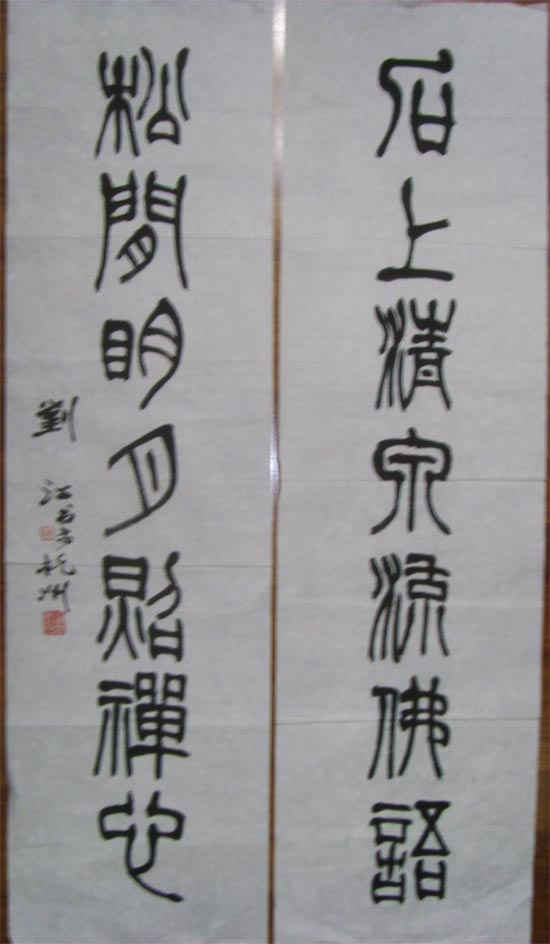 石上清泉流佛語
松閒明月照禪心
劉江書於杭州